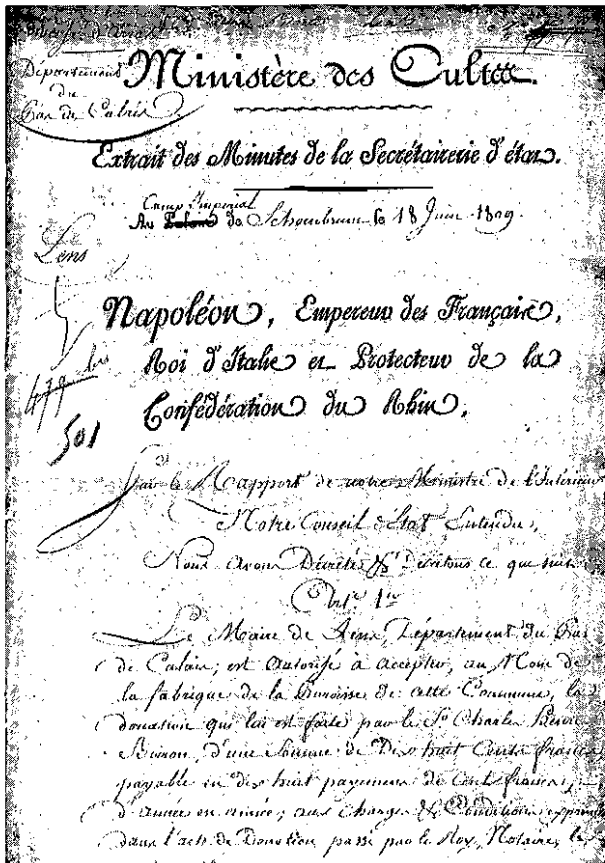 Département
du
Pas de Calais
Ministère des Cultes.
Extrait des Minutes de la Secrétairerie d'état.
Camp Impérial
Au Palais de Schoenbrunn le 18 Juin 1809.
Lens
479 bis
501
Napoléon, Empereur des Français,
Roi d'Italie et Protecteur de la
Confédération du Rhin,
Sur le Rapport de notre Ministre de l'Intérieur
Notre Conseil d'Etat Entendu,
Nous avons Décrété & Décrétons ce que suit
Art. 1er
Le Maire de Lens, Département du Pas
de Calais, est autorisé à accepter, au Nom de
la fabrique de la Paroisse de cette Commune, la
donation qui lui est faite par le Sr Charles
d'une Somme de Dix huit Cents francs
payable en dix huit payemens de Cent francs,
d'année en année; aux Charges & Conditions exprimées
dans l'acte de Donation passé par le Roy, Notaire, le